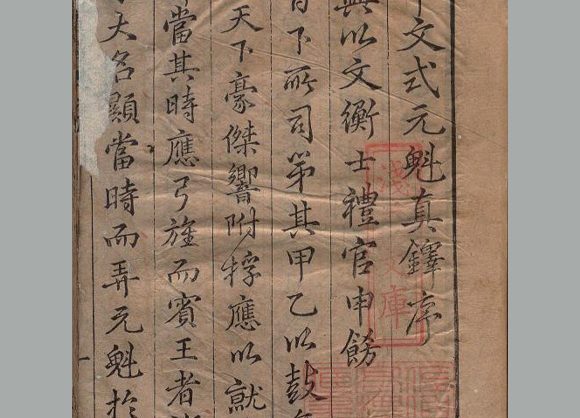 文式元魁真鐸序
以文衡士禮官申飭
下所司第其甲乙以鼓
天下豪傑響附桴應以就
當其時應弓旌而賓王者
大名顯當時而弄元魁於
淺草文庫